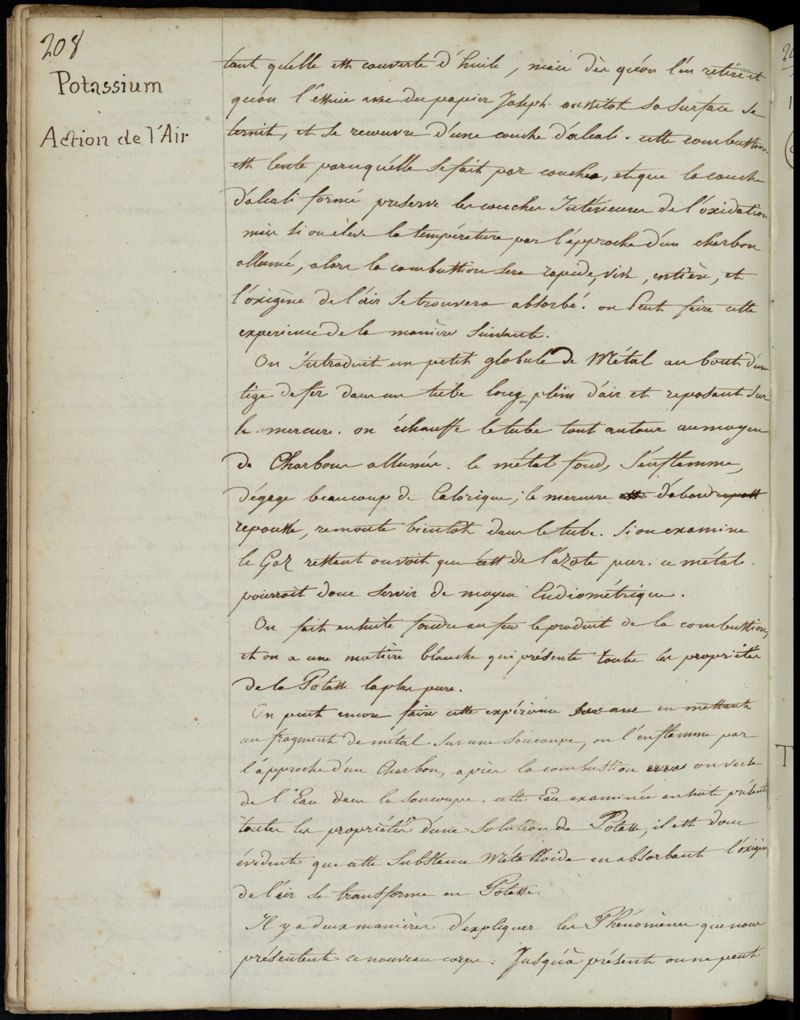 208
Potassium
Action de l'Air
tant qu'elle est couverte d'huile, mais dès qu'on l'en retire et
qu'on l'essuie avec du papier Joseph aussitot sa surface se
ternit, et se recouvre d'une couche d'alcali. cette combustion
est lente parcequ'elle se fait par couches, et que la couche
d'alcali formé preserve les couches Intérieures de l'oxidation
mais si on élève la température par l'approche d'un charbon
allumé, alors la combustion sera rapide, vive, entière, et
l'oxigène de l'air se trouvera absorbé. on peut faire cette
experience de la manière suivante.
On Introduit un petit globule de Métal au bout d'une
tige de fer dans un tube long plein d'air et reposant sur
le mercure. on échauffe le tube tout autour au moyen
de Charbons allumés. le métal fond, s'enflamme,
dégage beaucoup de Calorique; le mercure est d'abord
repoussé, remonte bientôt dans le tube. Si on examine
le Gaz restant on voit que c'est de l'azote pur. ce métal
pourrait donc servir de moyen Eudiométrique.
On fait ensuite fondre au feu le produit de la combustion,
et on a une matière blanche qui présente toutes les propriétés
de la Potasse la plus pure.
On peut encore faire cette expérience en mettant
un fragment de métal sur une soucoupe, on l'enflamme par
l'approche d'un Charbon, après la combustion on verse
de l'Eau dans la soucoupe. cette Eau examinée ensuite présente
toutes les propriétés d'une solution de Potasse, il est donc
évident que cette substance Métalloïde en absorbant l'oxigène
de l'air se transforme en Potasse.
Il y a deux manières d'expliquer les Phénomènes que nous
présentent ce nouveau corps. Jusqu'à présent on ne peut